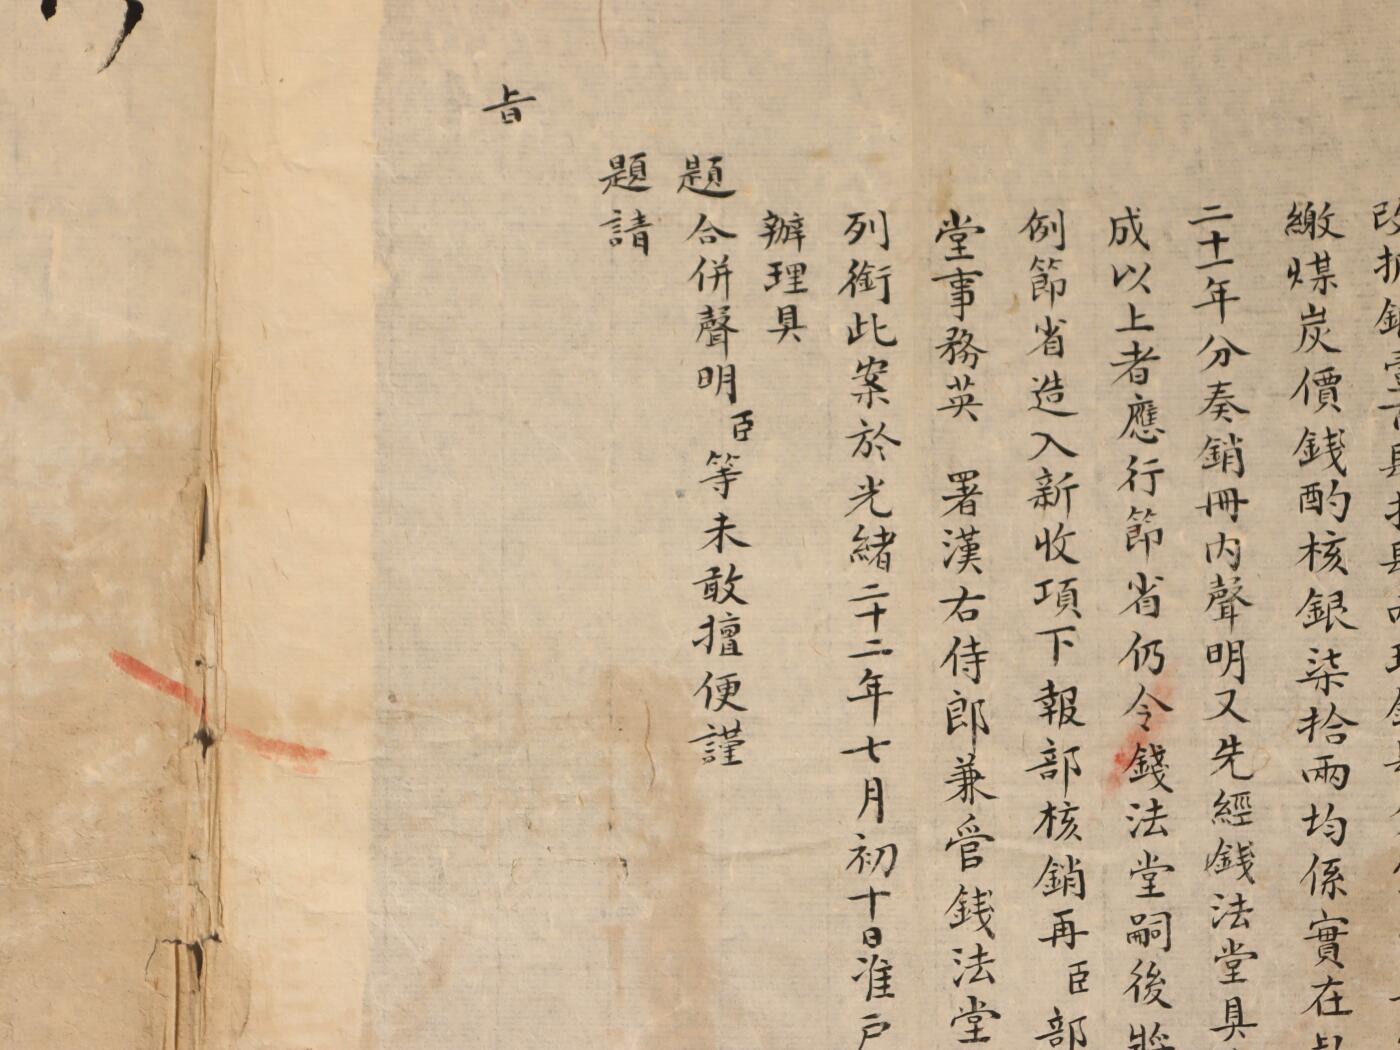 繳煤炭價錢酌核銀柒拾兩均係實在
二十一年分奏銷冊內聲明又先經錢法堂具
成以上者應行節省仍令錢法堂嗣後將
例節省造入新收項下報部核銷再臣部
堂事務英 署漢右侍郎兼管錢法堂
列銜此案於光緒二十二年七月初十日准戶
辦理具
題合併聲明臣等未敢擅便謹
題請
旨